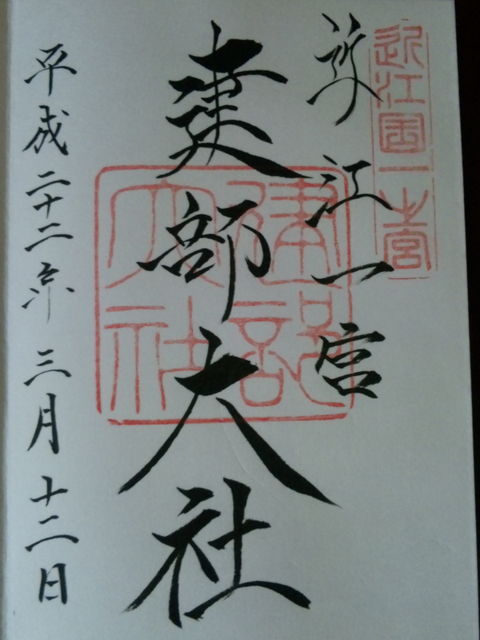 近江國一之宮
近江一宮
建部大社
建部大社
平成二十二年三月十二日